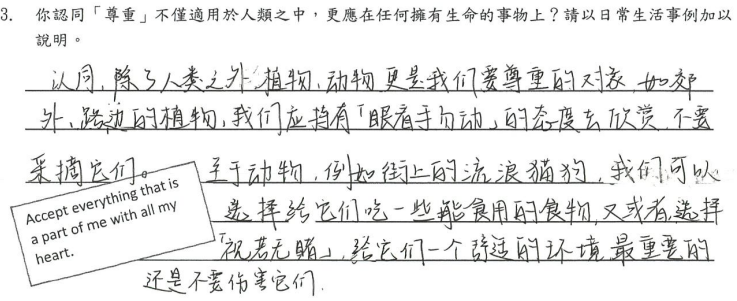 3. 你認同「尊重」不僅適用於人類之中,更應在任何擁有生命的事物上?請以日常生活事例加以
說明。
认同,除了人类之外,植物、动物更是我们要尊重的对象,如郊
外、路边的植物,我们应持有「眼看手勿动」的态度去欣赏,不要
采摘它们。至于动物,例如街上的流浪猫狗,我们可以
选择给它们吃一些能食用的食物,又或者选择
「视若无睹」,给它们一个舒适的环境,最重要的
还是不要伤害它们.
Accept everything that is
a part of me with all my
heart.